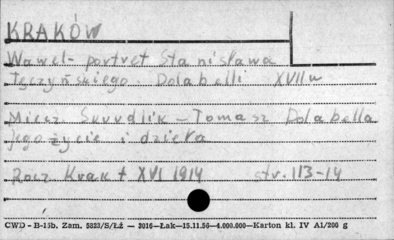 KRAKÓW
Wawel - portret Stanisława
Tęczyńskiego. Dolabelli XVII w
Miecz Skrudlik - Tomasz Dolabella
jego życie i dzieła
Rocz Krak t XVI 1914 str. 113-14
CWD - B-15b. Zam. 5323/S/Łź — 2016—Łak—15.11.56—4.000.000—Karton kl. IV A1/200 g